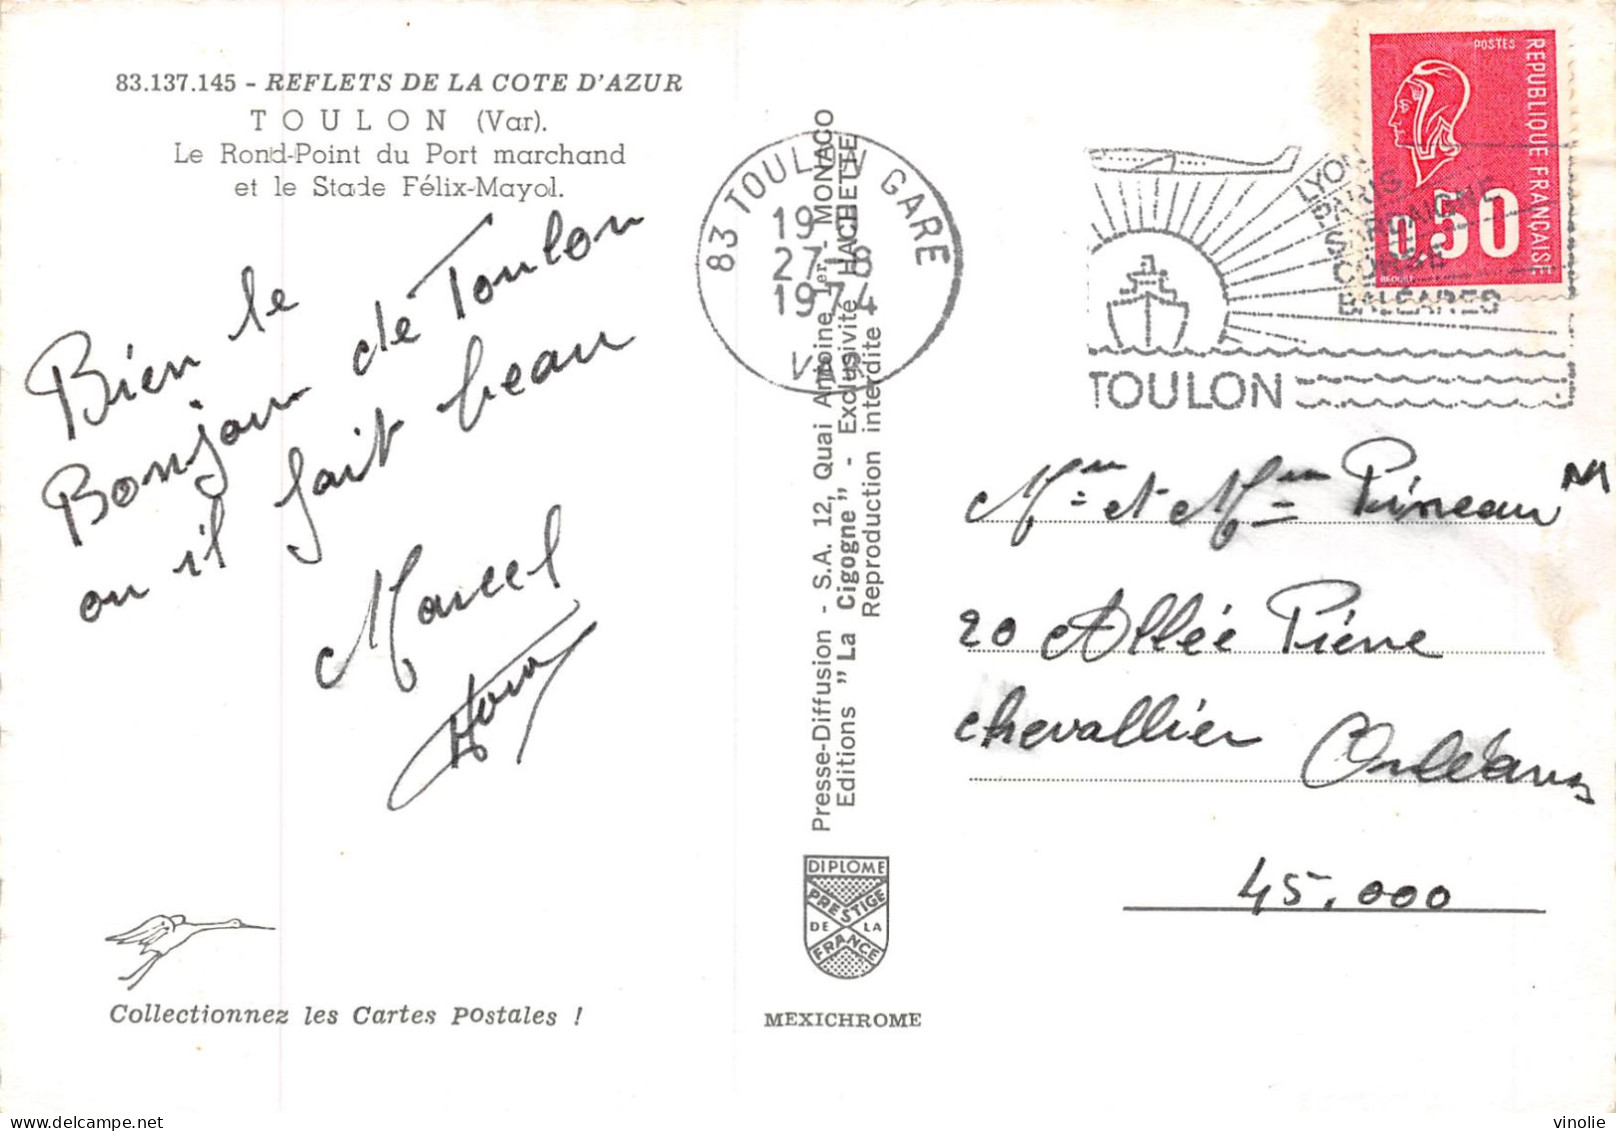 83.137.145 - REFLETS DE LA COTE D'AZUR
TOULON (Var).
Le Rond-Point du Port marchand
et le Stade Félix-Mayol.
Bien le
Bonjour de Toulon
ou il fait beau
Marcel
Collectionnez les Cartes Postales !
Presse-Diffusion - S.A. 12, Quai Antoine 1er - MONACO
Editions "La Cigogne" - Exclusivité HACHETTE
Reproduction interdite
DIPLOME
PRESTIGE
DE LA
FRANCE
MEXICHROME
83 TOULON GARE
19 H
27-6
1974
VAR
LYON
PARIS
SARDAIGNE
CORSE
BALÉARES
TOULON
POSTES
REPUBLIQUE FRANÇAISE
0,50
BEQUET
Mr et Mme Pineau M
20 Allée Pierre
chevallier Orléans
45.000
vinolie